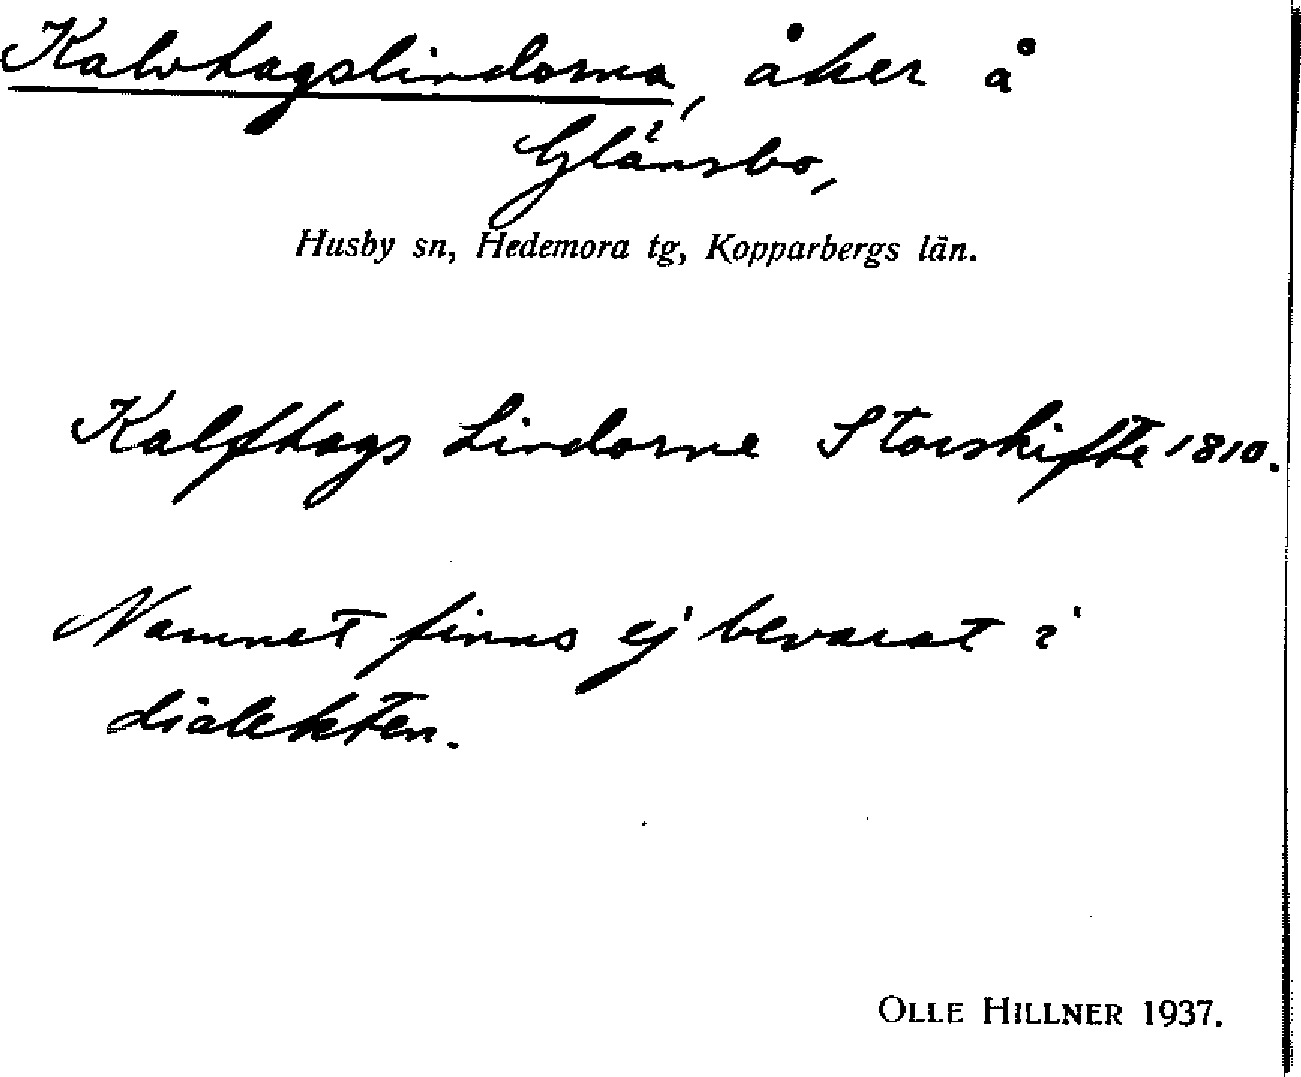 Kalvhagslindorna, åker å
Glänsbo,
Husby sn, Hedemora tg, Kopparbergs län.
Kalfhags Lindorne Storskifte 1810.
Namnet finns ej bevarat i
dialekten.
OLLE HILLNER 1937.